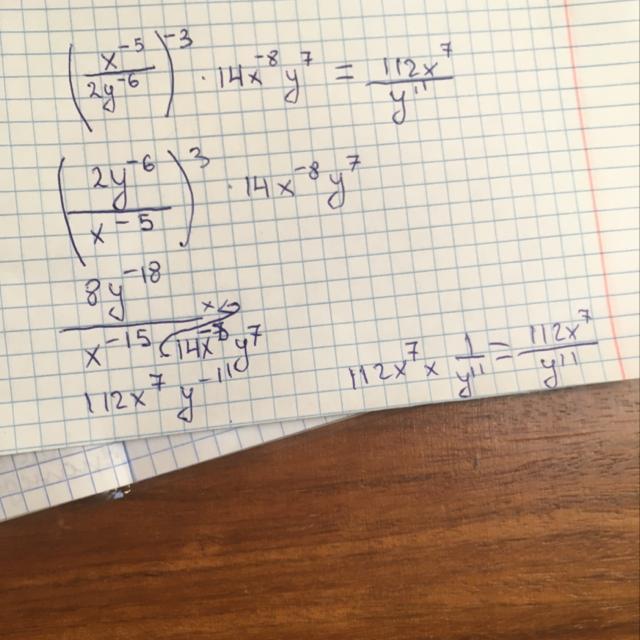 (x⁻⁵/2y⁻⁶)⁻³ · 14x⁻⁸y⁷ = 112x⁷/y¹¹
(2y⁻⁶/x⁻⁵)³ · 14x⁻⁸y⁷
8y⁻¹⁸/x⁻¹⁵ × 14x⁻⁸y⁷
112x⁷y⁻¹¹
112x⁷ × 1/y¹¹ = 112x⁷/y¹¹